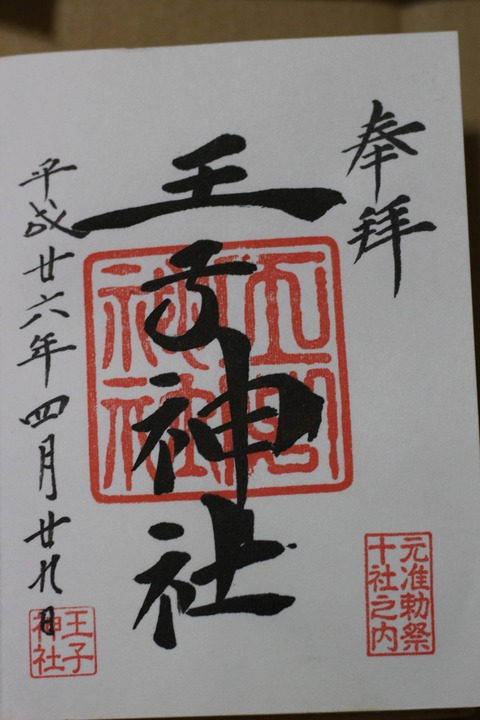 奉拝
王子神社
平成廿六年四月廿九日
元准勅祭
十社之内
王子
神社